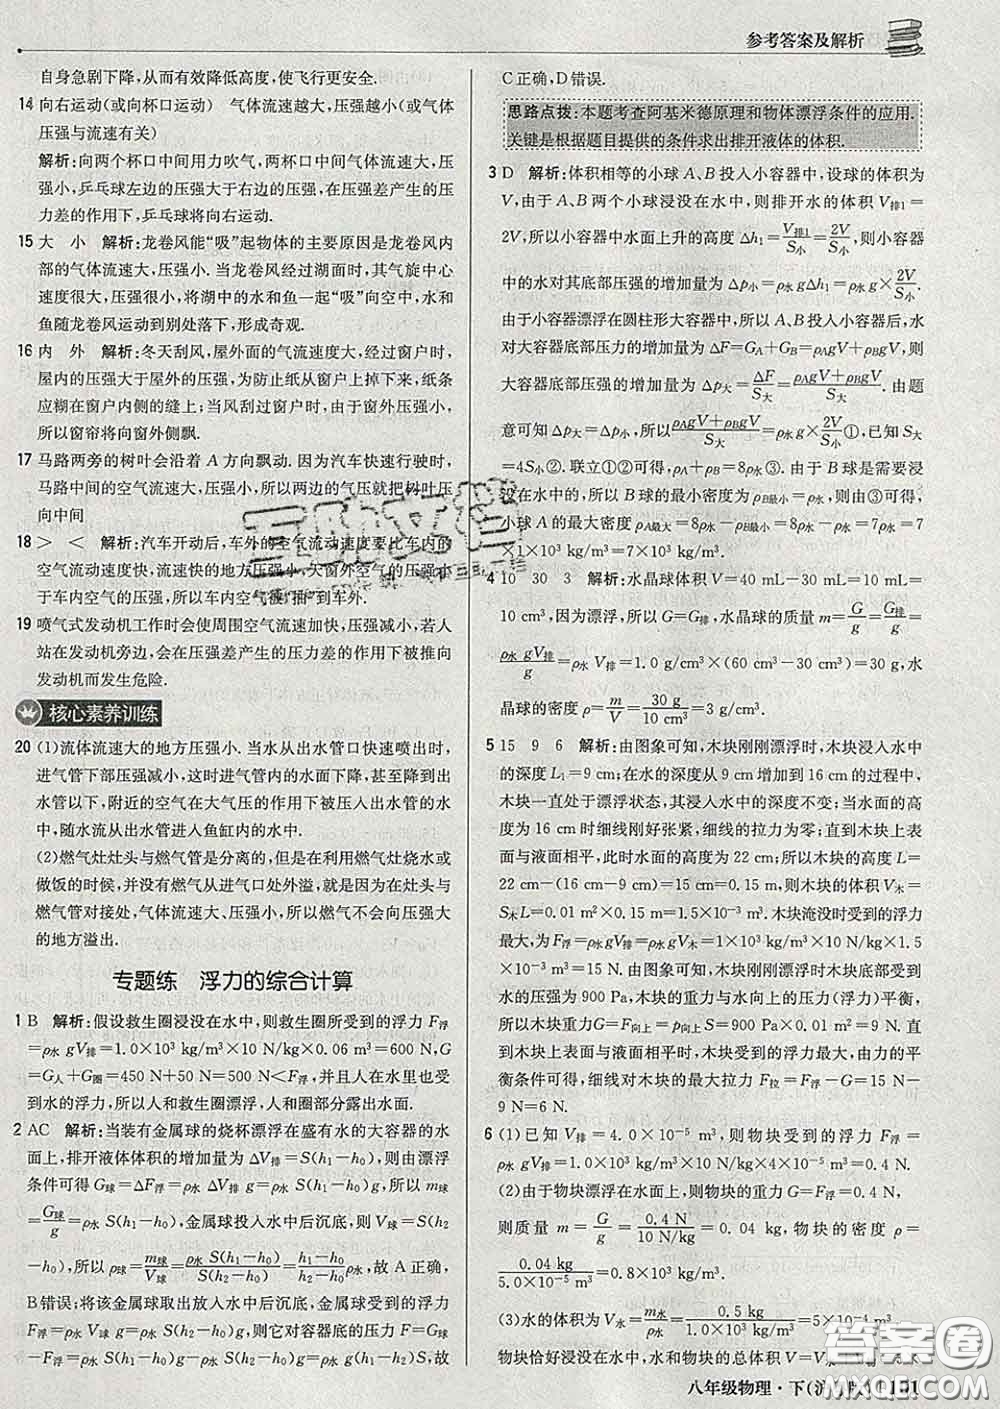 参考答案及解析
自身急剧下降,从而有效降低高度,使飞行更安全.
14 向右运动(或向杯口运动) 气体流速越大,压强越小(或气体
压强与流速有关)
解析:向两个杯口中间用力吹气,两杯口中间气体流速大,压
强小,乒乓球左边的压强大于右边的压强,在压强差产生的压
力差的作用下,乒乓球将向右运动.
15 大 小 解析:龙卷风能“吸”起物体的主要原因是龙卷风内
部的气体流速大,压强小.当龙卷风经过湖面时,其气旋中心
速度很大,压强很小,将湖中的水和鱼一起“吸”向空中,水和
鱼随龙卷风运动到别处落下,形成奇观.
16 内 外 解析:冬天刮风,屋外面的气流速度大,经过窗户时,
屋内的压强大于屋外的压强,为防止纸从窗户上掉下来,纸条
应糊在窗户内侧的缝上;当风刮过窗户时,由于窗外压强小,
所以窗帘将向窗外侧飘.
17 马路两旁的树叶会沿着 A 方向飘动.因为汽车快速行驶时,
马路中间的空气流速大,压强小,所以两边的气压就把树叶压
向中间
18 > < 解析:汽车开动后,车外的空气流动速度要比车内的
空气流动速度快,流速快的地方压强小,天窗外空气的压强小
于车内空气的压强,所以车内空气被“抽”到车外.
19 喷气式发动机工作时会使周围空气流速加快,压强减小,若人
站在发动机旁边,会在压强差产生的压力差的作用下被推向
发动机而发生危险.
核心素养训练
20 (1)流体流速大的地方压强小.当水从出水管口快速喷出时,
进气管下部压强减小,这时进气管内的水面下降,甚至降到出
水管以下,附近的空气在大气压的作用下被压入出水管的水
中,随水流从出水管进入鱼缸内的水中.
(2)燃气灶灶头与燃气管是分离的,但是在利用燃气灶烧水或
做饭的时候,并没有燃气从进气口处外溢,就是因为在灶头与
燃气管对接处,气体流速大、压强小,所以燃气不会向压强大
的地方溢出.
专题练 浮力的综合计算
1 B 解析:假设救生圈浸没在水中,则救生圈所受到的浮力 F浮
=ρ水 gV排=1.0×10³ kg/m³×10 N/kg×0.06 m³=600 N,G
=G人+G圈=450 N+50 N=500 N<F浮,并且人在水里也受
到水的浮力,所以人和救生圈漂浮,人和圈部分露出水面.
2 AC 解析:当装有金属球的烧杯漂浮在盛有水的大容器的水
面上,排开液体体积的增加量为 ΔV排=S(h₁-h₀),则由漂浮
条件可得 G球=ΔF浮=ρ水 ΔV排 g=ρ水 S(h₁-h₀)g,所以 m球
=G球/g=ρ水 S(h₁-h₀),金属球投入水中后沉底,则 V球=S(h₂
-h₀),所以 ρ球=m球/V球=ρ水 S(h₁-h₀)/S(h₂-h₀)=(h₁-h₀)/(h₂-h₀)·ρ水,故 A 正确,
B错误;将该金属球取出放入水中,沉底时,金属球受到的浮力
F浮=ρ水 V球 g=ρ水 S(h₂-h₀)g,则它对容器底的压力 F=G球
-F浮=ρ水 S(h₁-h₀)g-ρ水 S(h₂-h₀)g=ρ水(h₁-h₂)Sg,故
C正确,D错误.
思路点拨:本题考查阿基米德原理和物体漂浮条件的应用.
关键是根据题目提供的条件求出排开液体的体积.
3 D 解析:体积相等的小球 A、B 投入小容器中,设球的体积为
V,由于 A、B 两个小球浸没在水中,则排开水的体积 V排1=
2V,所以小容器中水面上升的高度 Δh₁=V排1/S小=2V/S小,则小容器
中的水对其底部压强的增加量为 Δp小=ρ水 gΔh₁=ρ水 g×2V/S小.
由于小容器漂浮在圆柱形大容器中,所以 A、B投入小容器后,水
对大容器底部压力的增加量为 ΔF=GA+GB=ρAgV+ρBgV,则
大容器底部压强的增加量为 Δp大=ΔF/S大=(ρAgV+ρBgV)/S大.由题
意可知 Δp大=Δp小,所以(ρAgV+ρBgV)/S大=ρ水 g×2V/S小①,已知 S大
=4S小②.联立①②可得,ρA+ρB=8ρ水③.由于 B 球是需要浸
没在水中的,所以 B 球的最小密度为 ρB最小=ρ水,则由③可得,
小球 A 的最大密度 ρA最大=8ρ水-ρB最小=8ρ水-ρ水=7ρ水=7
×1×10³ kg/m³=7×10³ kg/m³.
4 10 30 3 解析:水晶球体积 V=40 mL-30 mL=10 mL=
10 cm³,因为漂浮,所以 G=G排,水晶球的质量 m=G/g=G排/g=
ρ水 gV排/g=ρ水 V排=1.0 g/cm³×(60 cm³-30 cm³)=30 g,水
晶球的密度 ρ=m/V=30 g/10 cm³=3 g/cm³.
5 15 9 6 解析:由图象可知,木块刚刚漂浮时,木块浸入水中
的深度 L₁=9 cm;在水的深度从 9 cm增加到 16 cm的过程中,
木块一直处于漂浮状态,其浸入水中的深度不变;当水面的高
度为 16 cm时细线刚好张紧,细线的拉力为零;直到木块上表
面与液面相平,此时水面的高度为 22 cm;所以木块的高度 L=
22 cm-(16 cm-9 cm)=15 cm=0.15 m,则木块的体积 V木=
S木L=0.01 m²×0.15 m=1.5×10⁻³ m³,木块淹没时受的浮力
最大,为 F浮=ρ水 gV排=ρ水 gV木=1×10³ kg/m³×10 N/kg×1.5
×10⁻³ m³=15 N.由图象可知,木块刚刚漂浮时木块底部受到
水的压强为 900 Pa,木块的重力与水向上的压力(浮力)平衡,
所以木块重力G=F向上=p向上S=900 Pa×0.01 m²=9 N.直
到木块上表面与液面相平时,木块受到的浮力最大,由力的平
衡条件可得,细线对木块的最大拉力 F拉=F浮-G=15 N-
9 N=6 N.
6 (1)已知 V排=4.0×10⁻⁵ m³,则物块受到的浮力 F浮=
ρ水 gV排=1.0×10³ kg/m³×10 N/kg×4.0×10⁻⁵ m³=0.4 N.
(2)由于物块漂浮在水面上,则物块的重力 G=F浮=0.4 N,
则质量 m=G/g=0.4 N/10 N/kg=0.04 kg,物块的密度 ρ=m/V=
0.04 kg/5.0×10⁻⁵ m³=0.8×10³ kg/m³.
(3)水的体积为 V水=m水/ρ水=0.5 kg/1.0×10³ kg/m³
物块恰好浸没在水中,水和物块的总体积 V=V水
八年级物理·下
答案圈